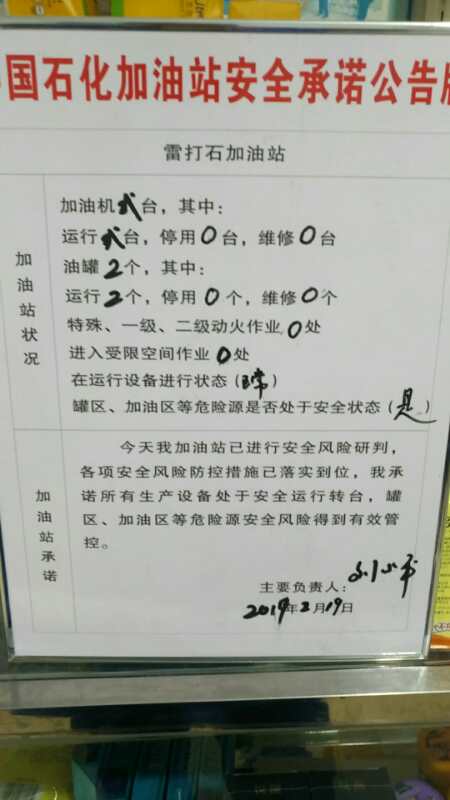 国石化加油站安全承诺公告
雷打石加油站
加油站状况
加油机弍台，其中：
运行弍台，停用0台，维修0台
油罐2个，其中：
运行2个，停用0个，维修0个
特殊、一级、二级动火作业0处
进入受限空间作业0处
在运行设备进行状态（正常）
罐区、加油区等危险源是否处于安全状态（是）
加油站承诺
今天我加油站已进行安全风险研判，
各项安全风险防控措施已落实到位，我承
诺所有生产设备处于安全运行转台，罐
区、加油区等危险源安全风险得到有效管
控。
主要负责人：
2019年2月19日